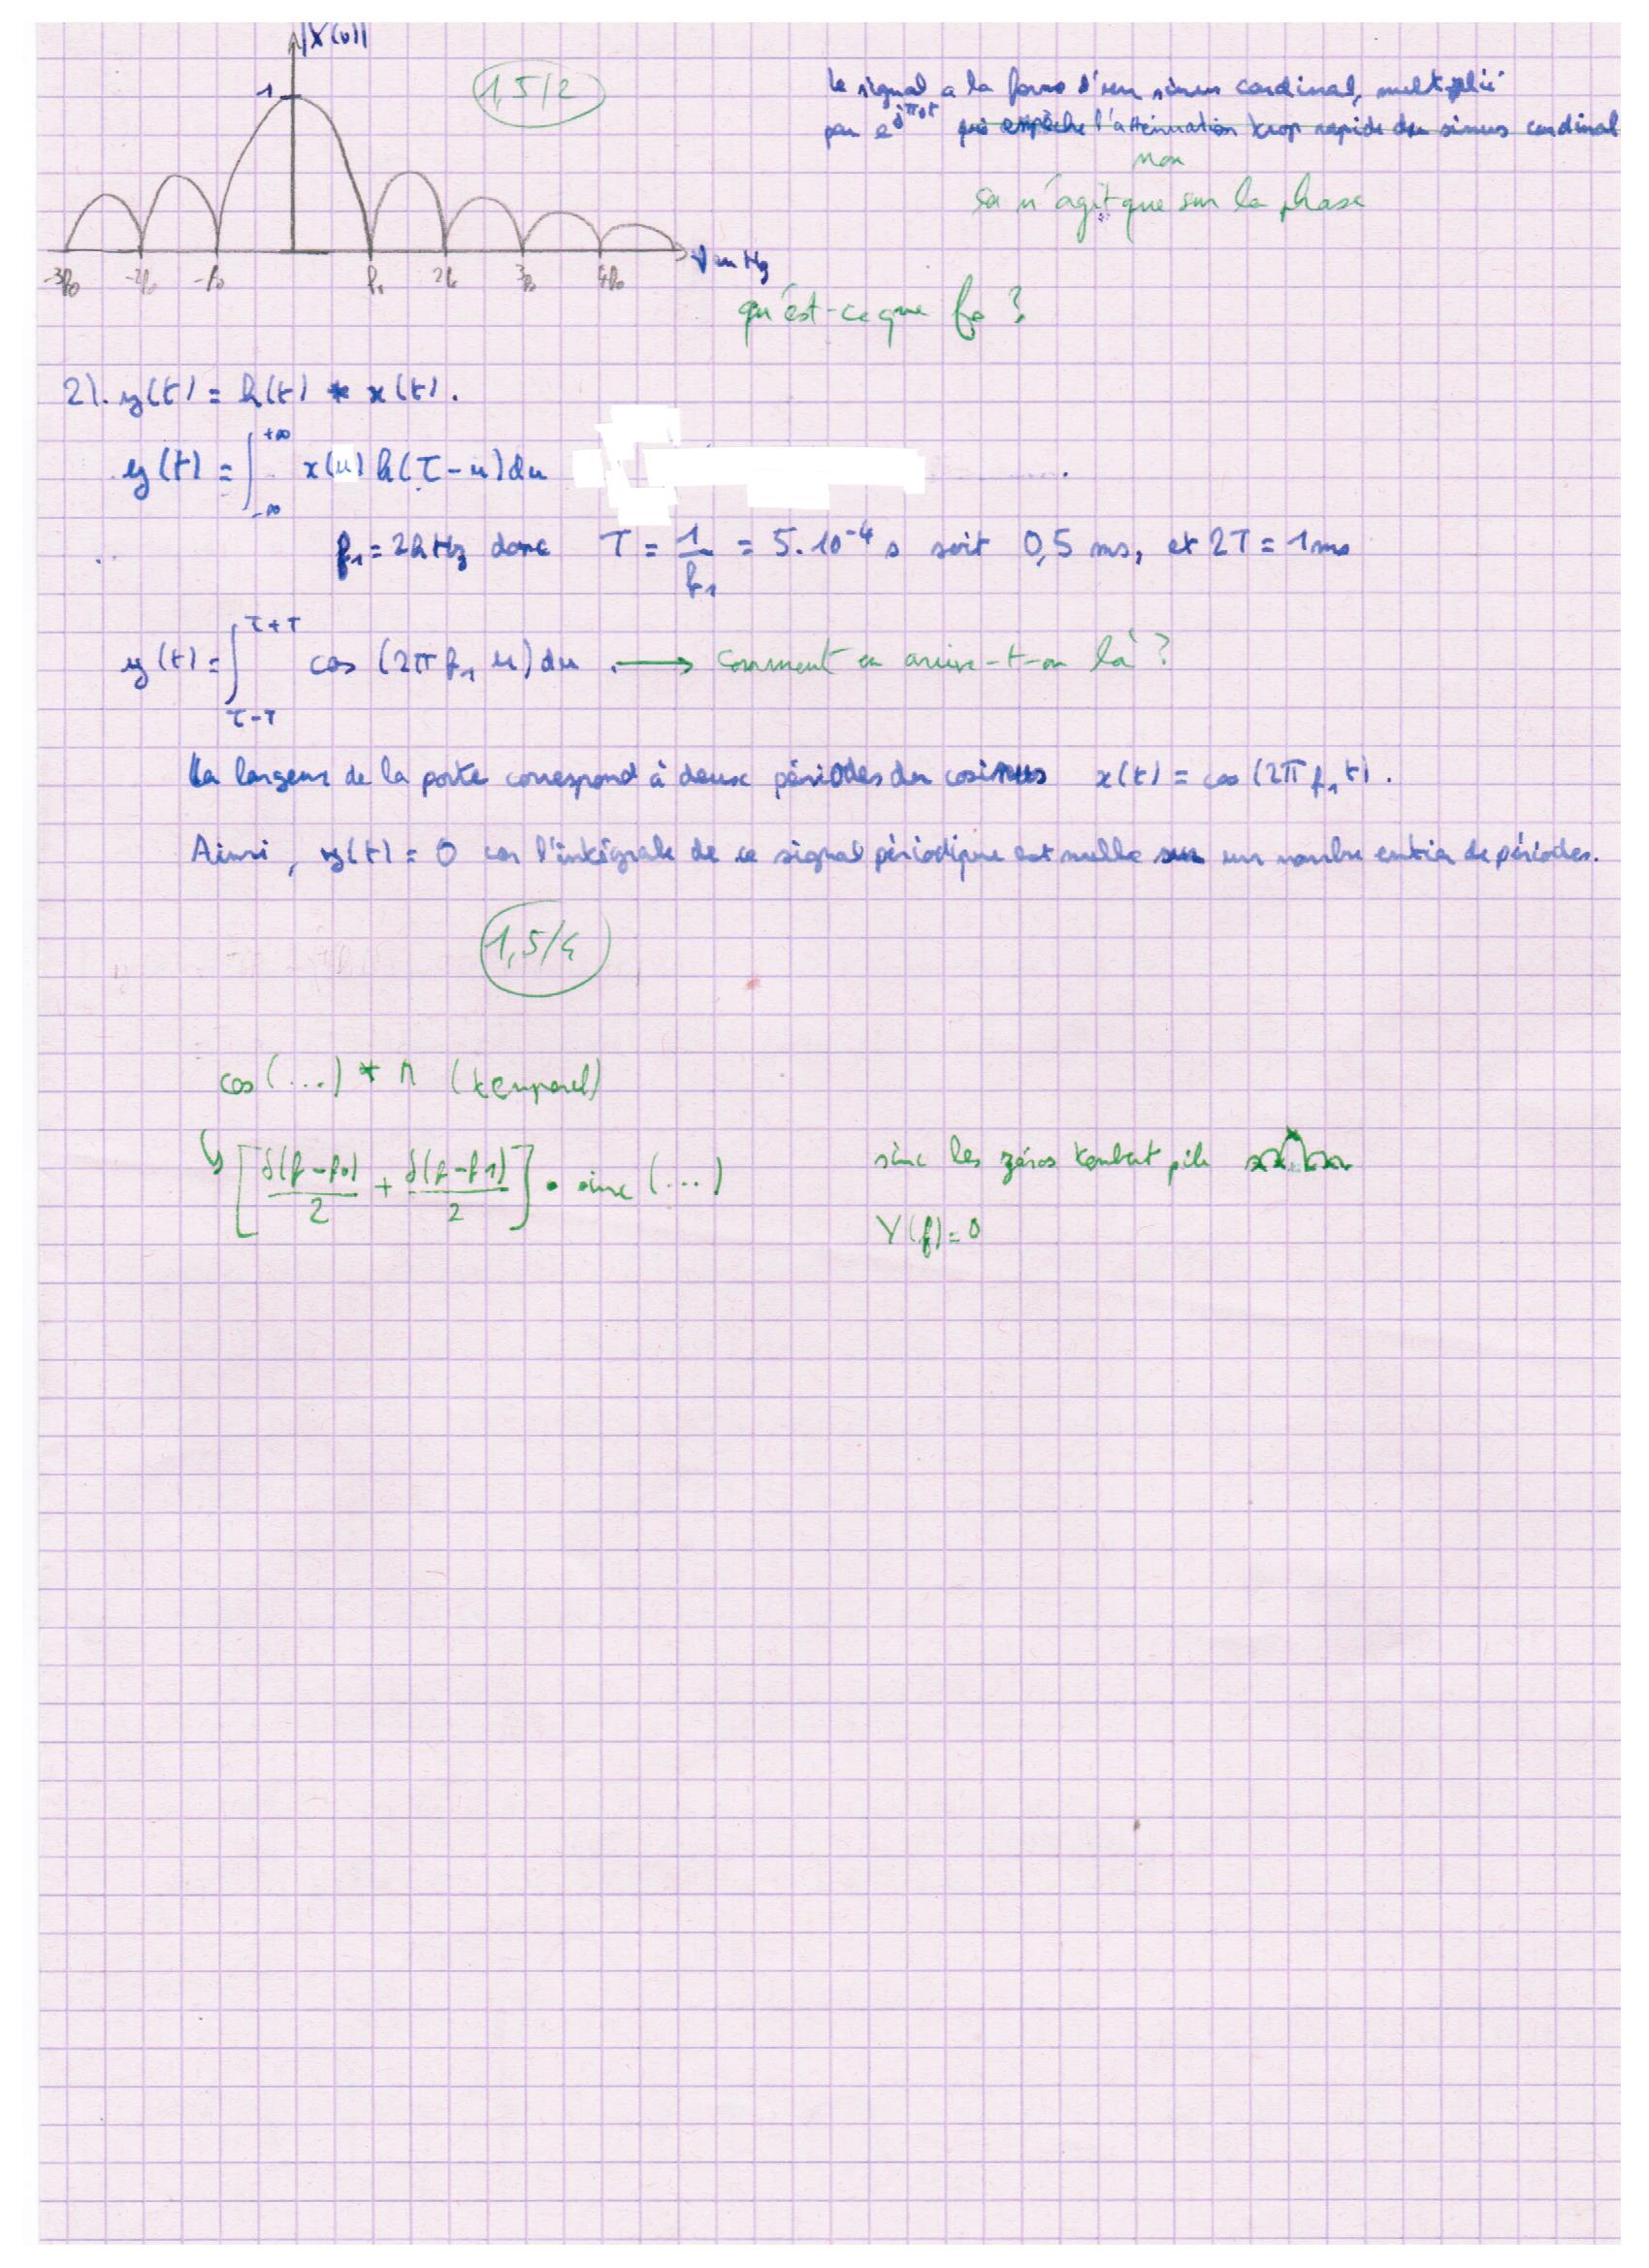 |X(ν)|
1
1,5/2
le signal a la forme d'un sinus cardinal, multiplié
par e^jπνt qui empêche l'atténuation trop rapide du sinus cardinal
non
sa n'agit que sur la phase
-3f₀ -2f₀ -f₀ f₁ 2f₀ 3f₀ 4f₀ ν en Hz
qu'est-ce que f₀ ?
2). y(t) = h(t) * x(t).
y(t) = ∫_{-∞}^{+∞} x(u) h(τ-u) du
f₁ = 2kHz donc T = 1/f₁ = 5.10⁻⁴ s soit 0,5 ms, et 2T = 1ms
y(t) = ∫_{τ-T}^{τ+T} cos (2π f₁ u) du . → comment en arrive-t-on là ?
La largeur de la porte correspond à deux périodes du cosinus x(t) = cos (2π f₁ t).
Ainsi, y(t) = 0 car l'intégrale de ce signal périodique est nulle sur un nombre entier de périodes.
1,5/4
cos (...) * Π (temporel)
↳ [δ(f-f₀)/2 + δ(f-f1)/2] • sinc (...)
sinc les zéros tombent pile
Y(f) = 0